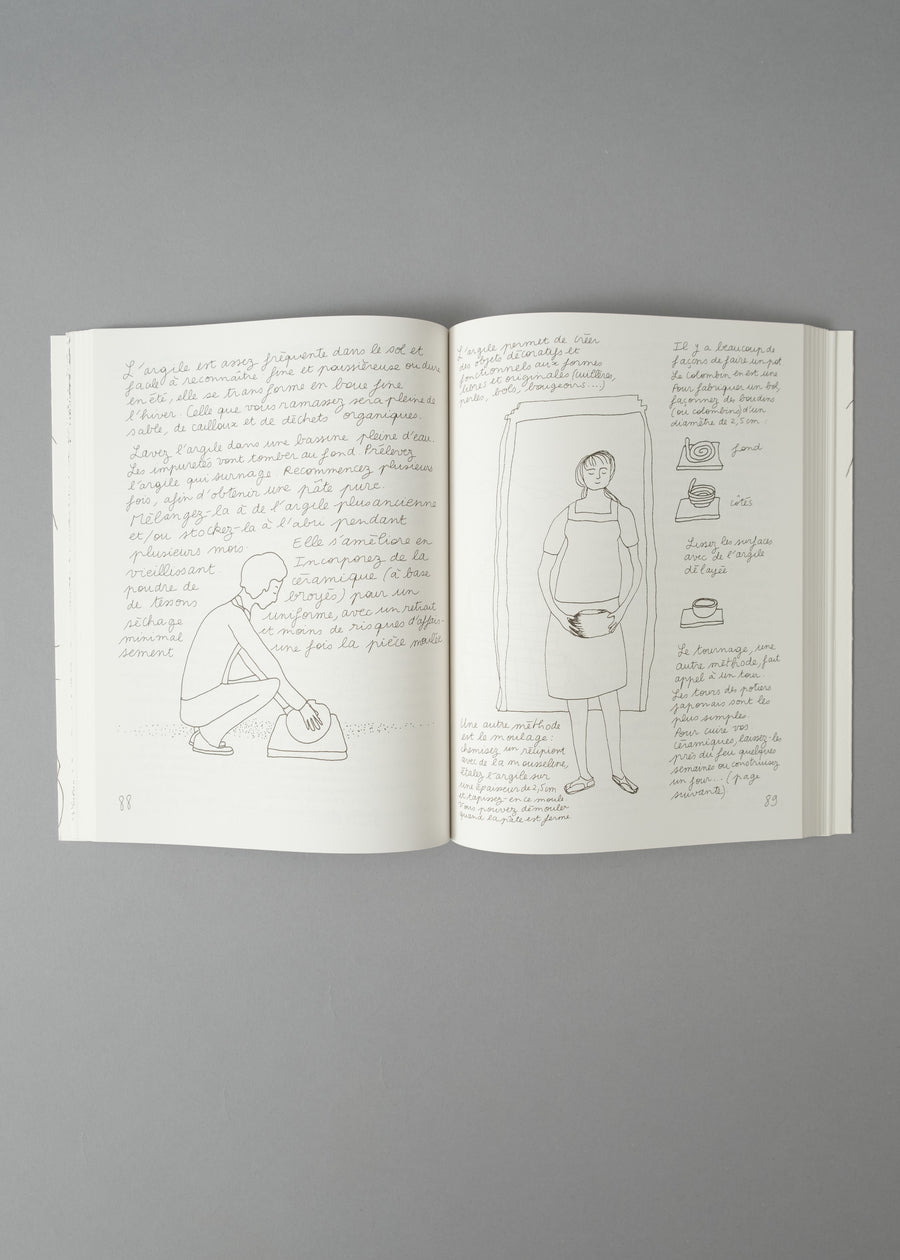 L'argile est assez fréquente dans le sol et
facile à reconnaître fine et poussiéreuse ou dure
en été, elle se transforme en boue fine
l'hiver. Celle que vous ramassez sera pleine de
sable, de cailloux et de déchets organiques.
Lavez l'argile dans une bassine pleine d'eau.
Les impuretés vont tomber au fond. Prélevez
l'argile qui surnage. Recommencez plusieurs
fois, afin d'obtenir une pâte pure.
Mélangez-la à de l'argile plus ancienne
et/ou stockez-la à l'abri pendant
plusieurs mois Elle s'améliore en
vieillissant. Incorporez de la
poudre de céramique (à base
de tessons broyés) pour un
séchage uniforme, avec un retrait
minimal et moins de risques d'affais-
sement une fois la pièce moulée
88
L'argile permet de créer
des objets décoratifs et
fonctionnels aux formes
libres et originales (cuillères,
perles, bols, bougeoirs...)
Une autre méthode
est le moulage :
chemisez un récipient
avec de la mousseline,
étalez l'argile sur
une épaisseur de 2,5 cm
et tapissez-en ce moule
Vous pouvez démouler
quand la pâte est ferme
Il y a beaucoup de
façons de faire un pot
Le colombin en est une
Pour fabriquer un bol,
façonnez des boudins
(ou colombins) d'un
diamètre de 2,5 cm :
fond
côtés
Lissez les surfaces
avec de l'argile
délayée
Le tournage, une
autre méthode, fait
appel à un tour.
Les tours des potiers
japonais sont les
plus simples
Pour cuire vos
céramiques, laissez-les
près du feu quelques
semaines ou construisez
un four... (page
suivante)
89